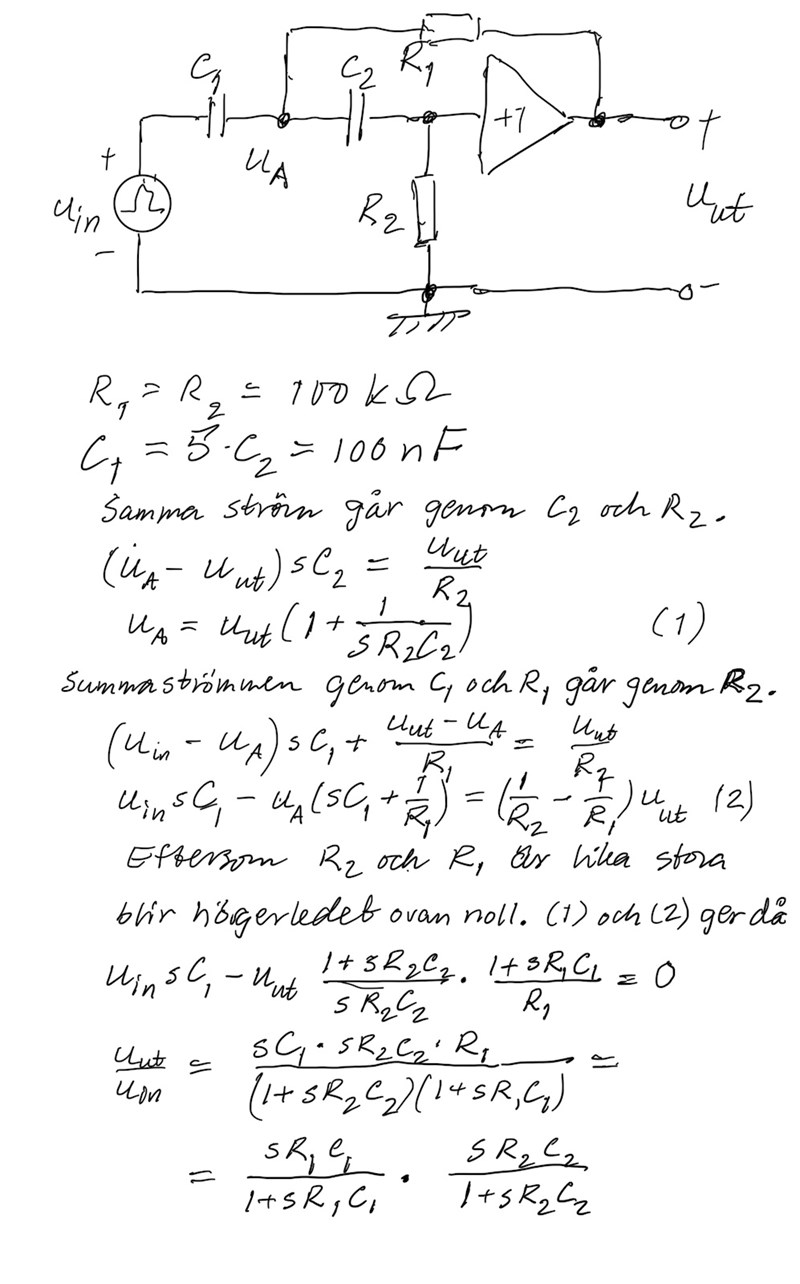 R₁
C₁ C₂
+1
+ +
u_A
u_in R₂ u_ut
- -
R₁ = R₂ = 100 kΩ
C₁ = 5·C₂ = 100 nF
Samma ström går genom C₂ och R₂.
(u_A - u_ut) sC₂ = u_ut/R₂
u_A = u_ut (1 + 1/(sR₂C₂)) (1)
Summaströmmen genom C₁ och R₁ går genom R₂.
(u_in - u_A) sC₁ + (u_ut - u_A)/R₁ = u_ut/R₂
u_in sC₁ - u_A (sC₁ + 1/R₁) = (1/R₂ - 1/R₁) u_ut (2)
Eftersom R₂ och R₁ är lika stora
blir högerledet ovan noll. (1) och (2) ger då
u_in sC₁ - u_ut (1+sR₂C₂)/(sR₂C₂) · (1+sR₁C₁)/R₁ = 0
u_ut/u_in = (sC₁·sR₂C₂·R₁)/((1+sR₂C₂)(1+sR₁C₁)) =
= (sR₁C₁)/(1+sR₁C₁) · (sR₂C₂)/(1+sR₂C₂)